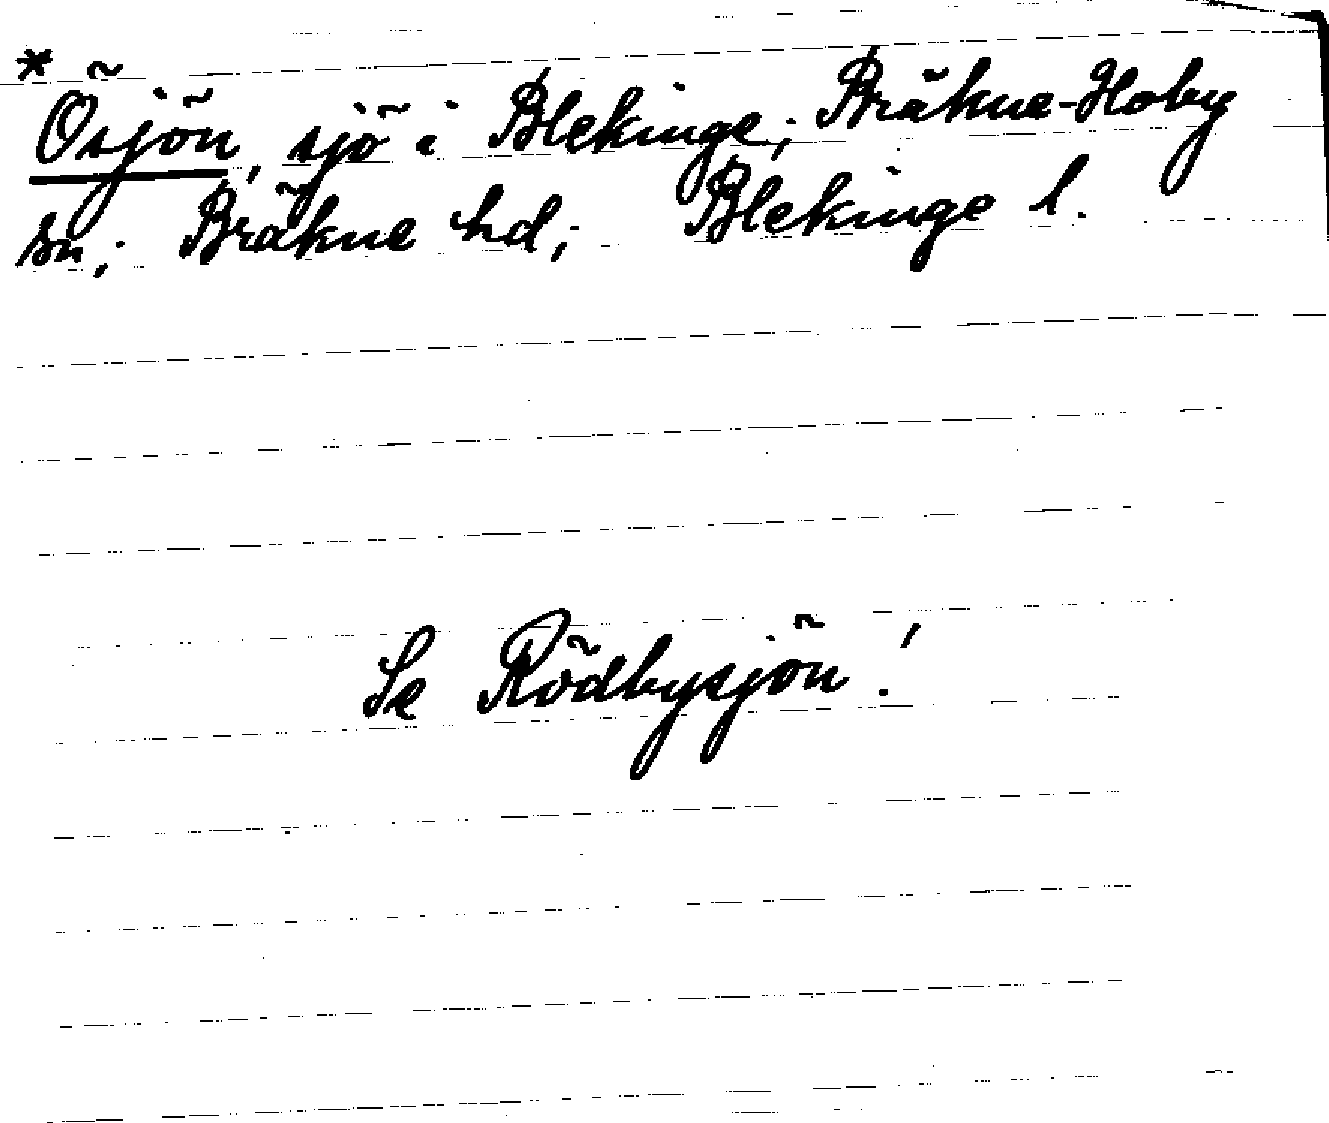 * Ösjön, sjö i Blekinge; Bräkne-Hoby
sn; Bräkne hd; Blekinge l.
Se Rödbysjön!